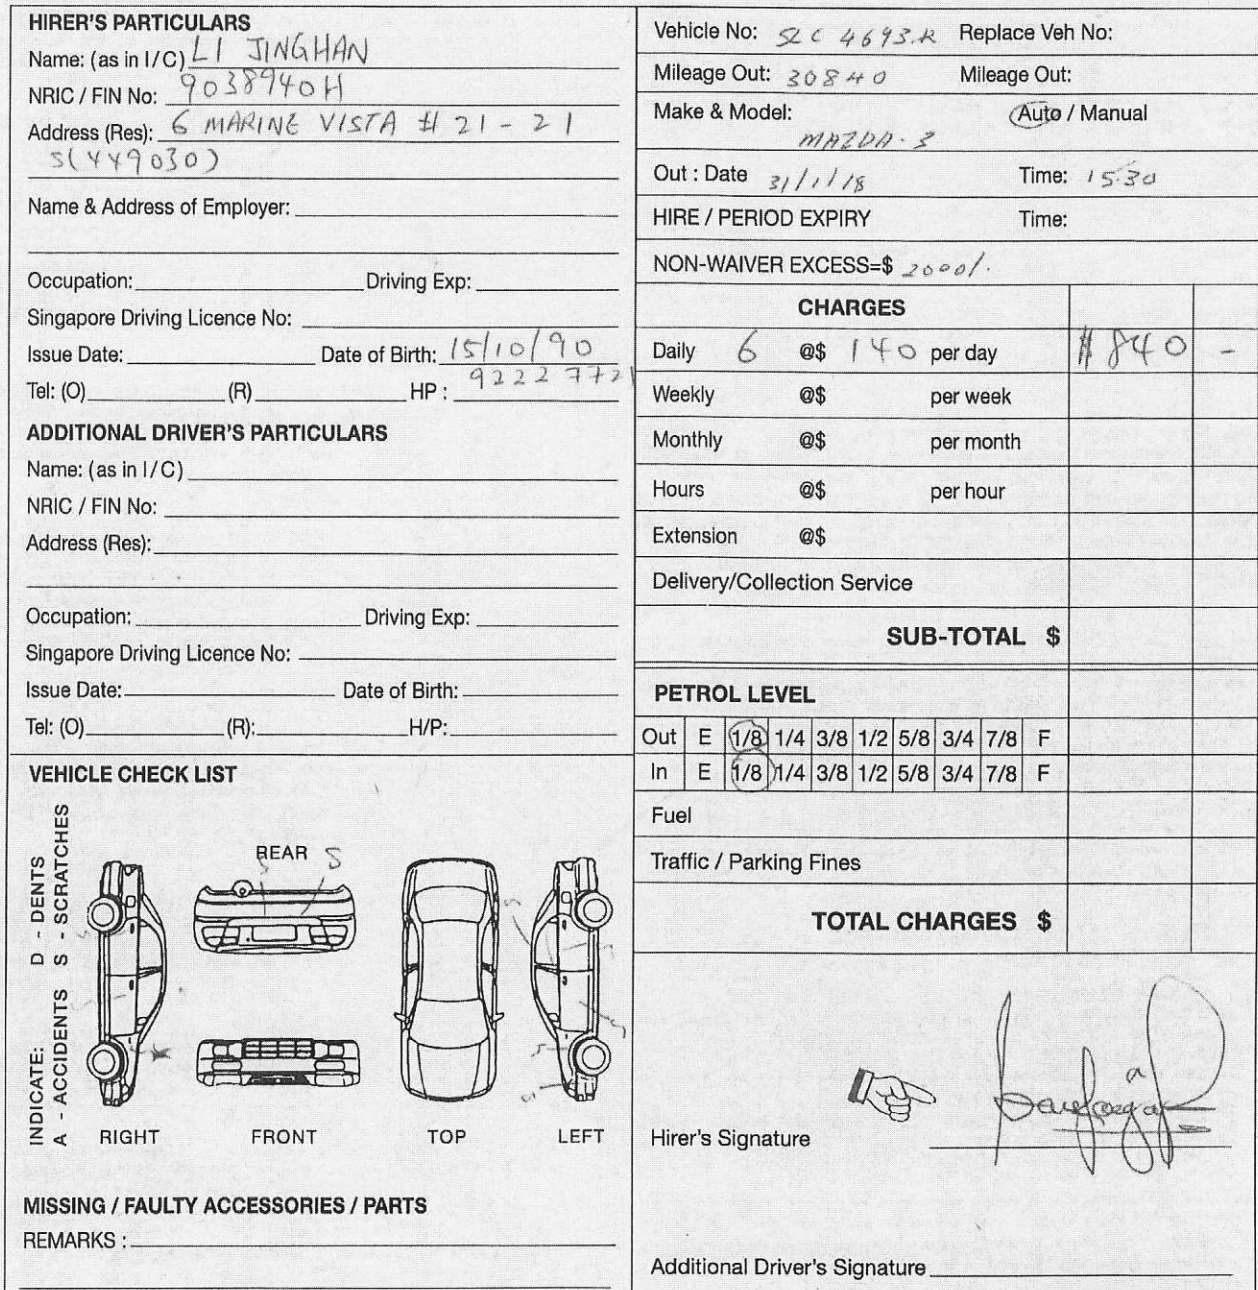 HIRER'S PARTICULARS
Name: (as in I/C) LI JINGHAN
NRIC / FIN No: 9038940H
Address (Res): 6 MARINE VISTA # 21 - 21
S(449030)
Name & Address of Employer:
Occupation: Driving Exp:
Singapore Driving Licence No:
Issue Date: Date of Birth: 15/10/90
Tel: (O) (R) HP : 9222 7721
ADDITIONAL DRIVER'S PARTICULARS
Name: (as in I/C)
NRIC / FIN No:
Address (Res):
Occupation: Driving Exp:
Singapore Driving Licence No:
Issue Date: Date of Birth:
Tel: (O) (R): H/P:
VEHICLE CHECK LIST
INDICATE: D - DENTS
A - ACCIDENTS S - SCRATCHES
REAR S S
RIGHT FRONT TOP LEFT
MISSING / FAULTY ACCESSORIES / PARTS
REMARKS :
Vehicle No: SLC 4693.R Replace Veh No:
Mileage Out: 30840 Mileage Out:
Make & Model: Auto / Manual
MAZDA. 3
Out : Date 31/1/18 Time: 15.30
HIRE / PERIOD EXPIRY Time:
NON-WAIVER EXCESS=$ 2000/.
CHARGES
Daily 6 @$ 140 per day $840 -
Weekly @$ per week
Monthly @$ per month
Hours @$ per hour
Extension @$
Delivery/Collection Service
SUB-TOTAL $
PETROL LEVEL
Out E 1/8 1/4 3/8 1/2 5/8 3/4 7/8 F
In E 1/8 1/4 3/8 1/2 5/8 3/4 7/8 F
Fuel
Traffic / Parking Fines
TOTAL CHARGES $
Hirer's Signature
Additional Driver's Signature